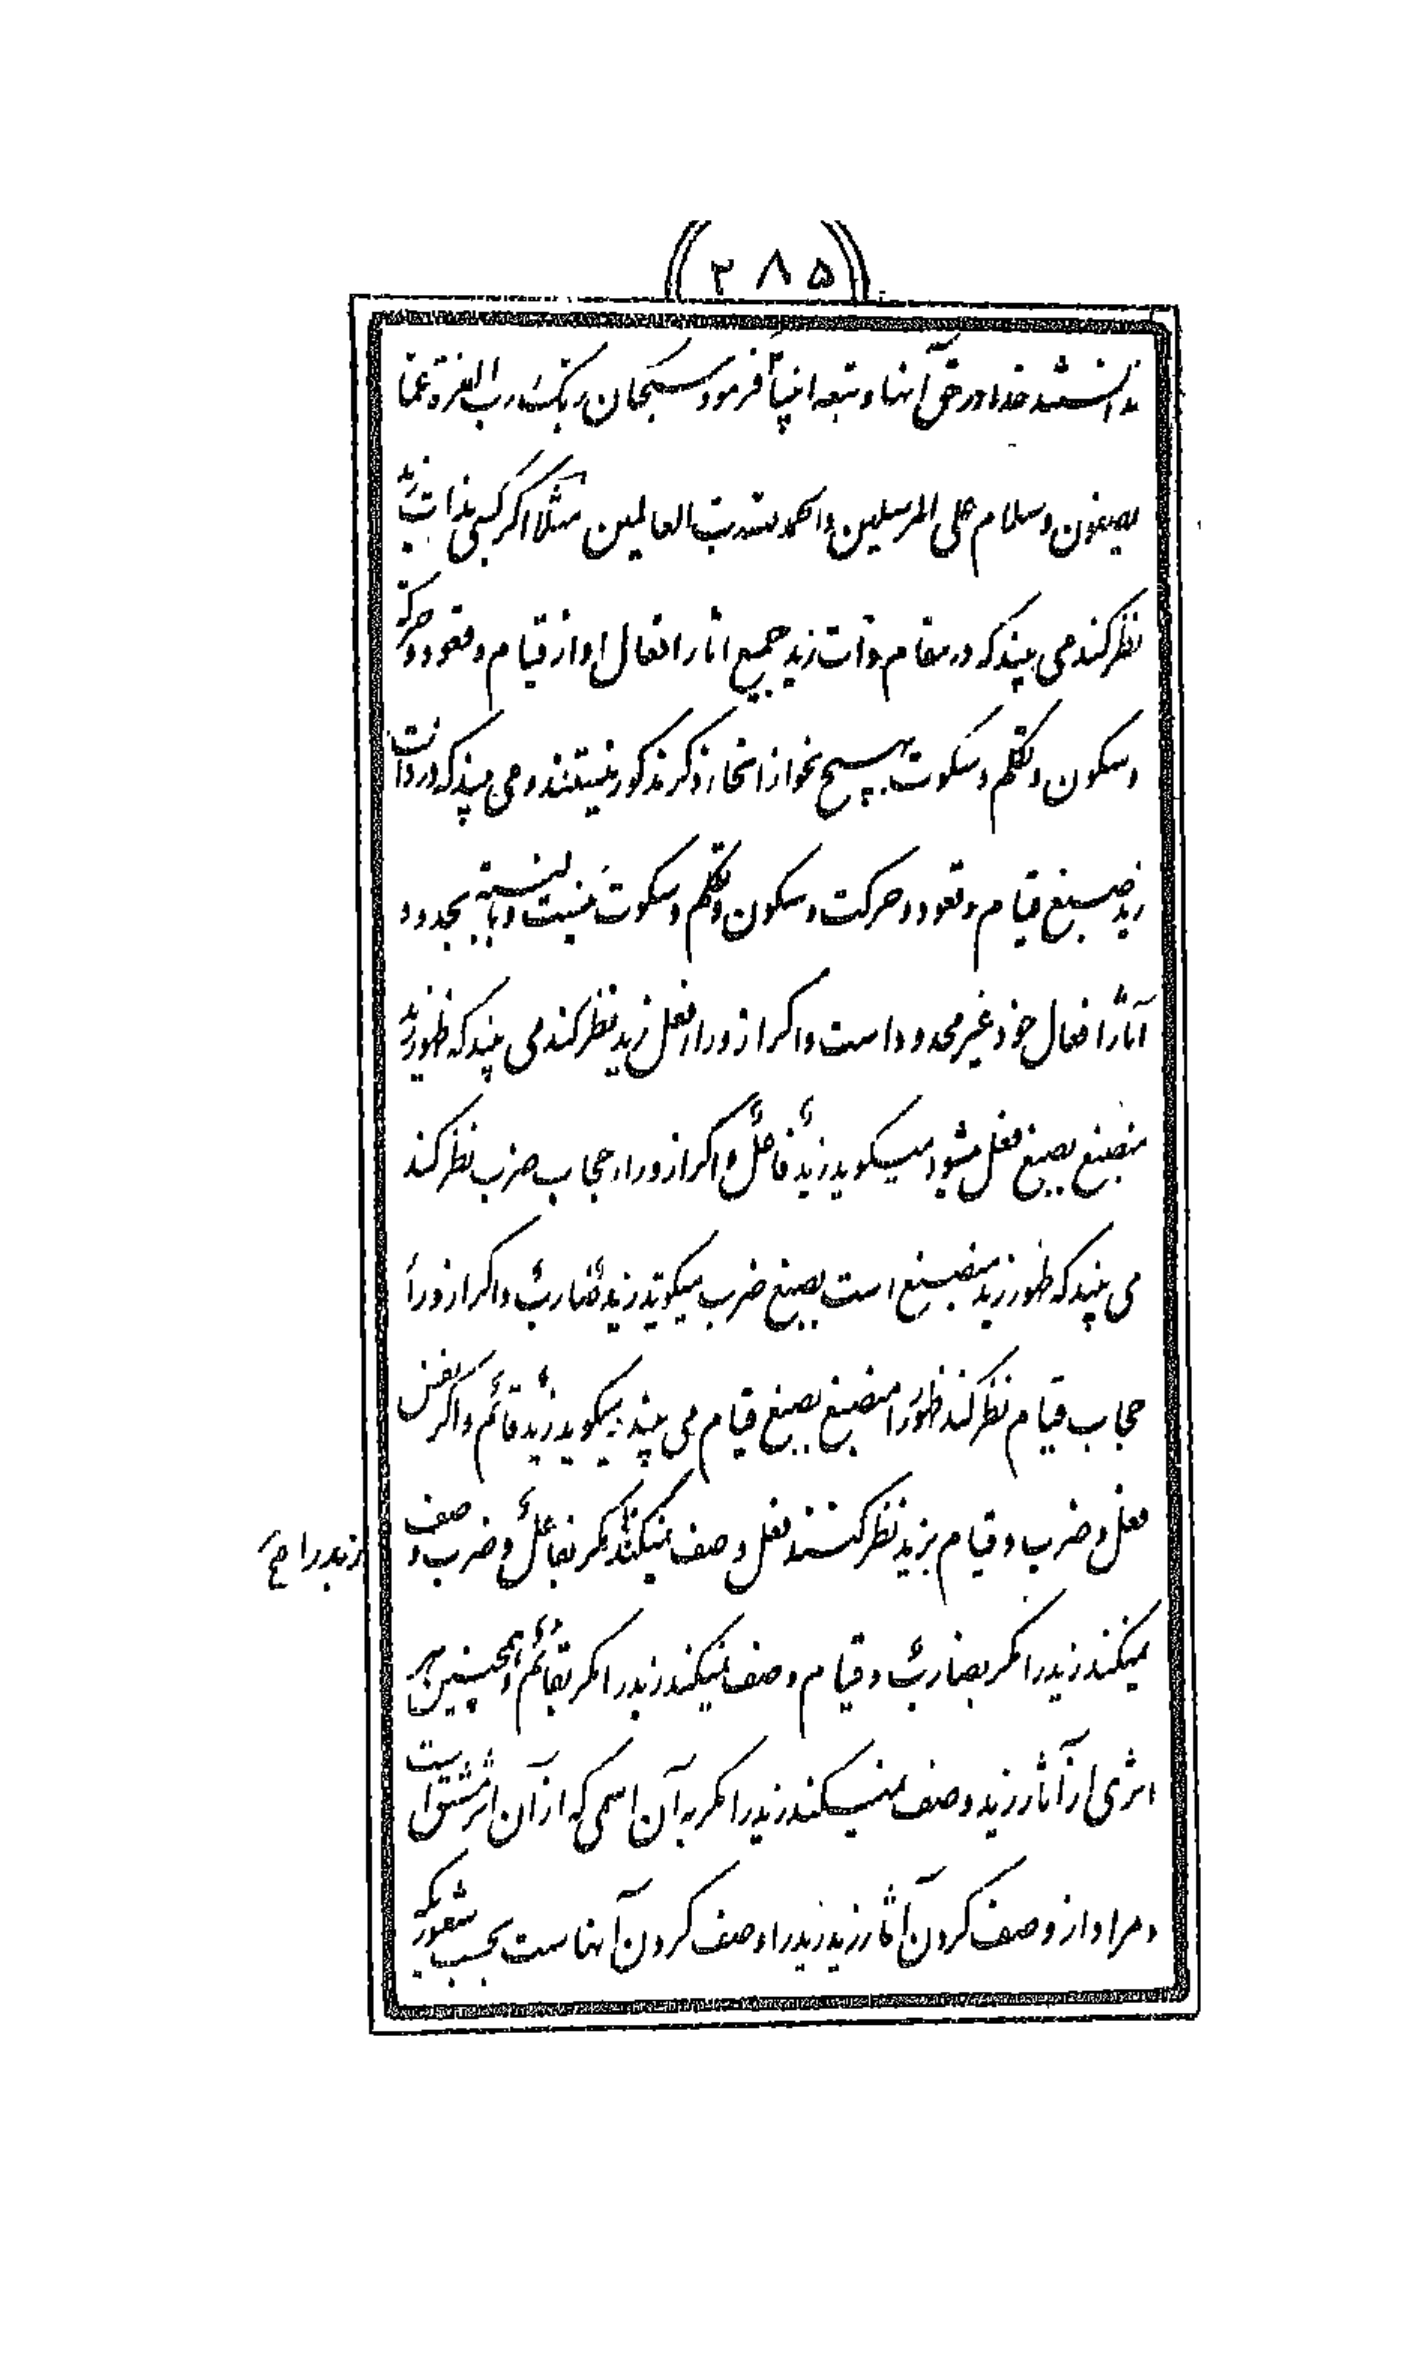 ۲۸۵
ندانستند خدا در حق آنها و تبعه انبیاء فرمود سبحان ربک رب العزة عما
یصفون و سلام علی المرسلین و الحمد لله رب العالمین مثلا اگر کسی بذات زید
نظر کند می بیند که در مقام ذات زید جمیع اثار افعال او از قیام و قعود و حرکة
و سکون و تکلم و سکوت بهیچ نحو از انحاء ذکر مذکور نیستند و می بیند که در ذات
زید صبغ قیام و قعود و حرکت و سکون و تکلم و سکوت نیست و بالنسبة بحدود
آثار افعال خود غیر محدود است و اگر از وراء فعل زید نظر کند می بیند که ظهور زید
منصبغ بصبغ فعل میشود میگوید زیدٌ فاعلٌ و اگر از وراء حجاب ضرب نظر کند
می بیند که ظهور زید منصبغ است بصبغ ضرب میگوید زیدٌ ضاربٌ و اگر از وراء
حجاب قیام نظر کند ظهور را منصبغ بصبغ قیام می بیند میگوید زیدٌ قائمٌ و اگر نفس
فعل و ضرب و قیام بزید نظر کنند فعل وصف نمیکند مگر بفاعلٌ و ضرب وصف
زید را
نمیکند زید را مگر بضاربٌ و قیام وصف نمیکند زید را مگر بقائمٌ و همچنین هر
اثری از آثار زید وصف نمیکند زید را مگر به آن اسمی که از آن اثر مشتق است
و مراد از وصف کردن آثار زید زید را وصف کردن آنهاست بحسب شعوریکه